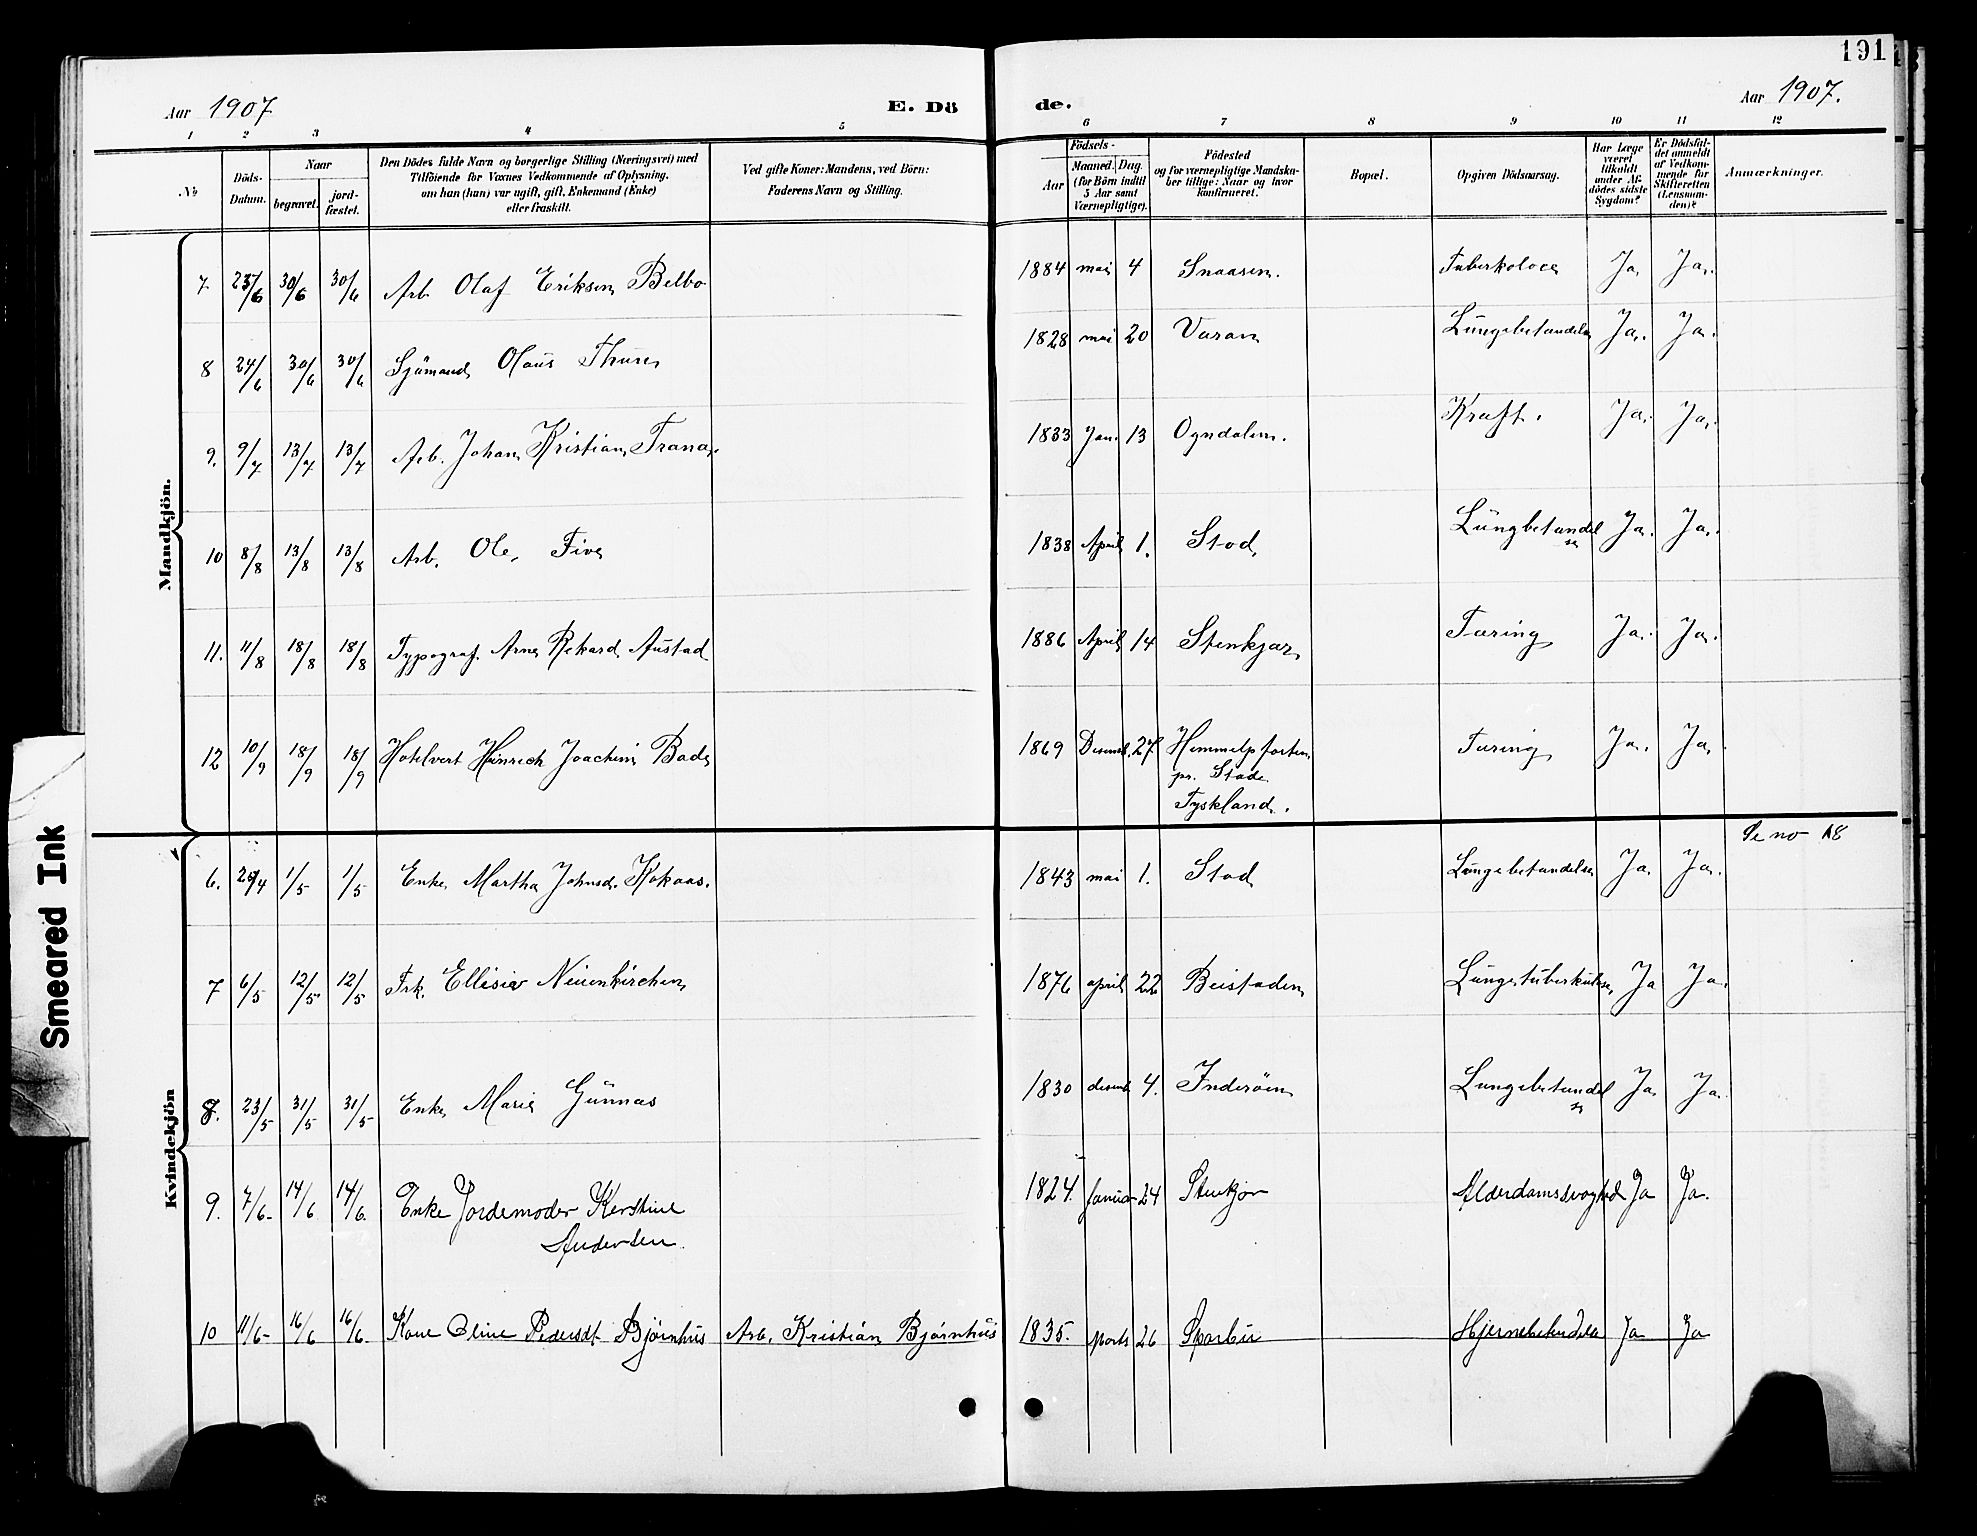 191
Aar 1907
E. Dö
de.
Aar 1907.
1 2 3 4 5 6 7 8 9 10 11 12
No
Döds-
Datum.
Naar
begravet.
jord-
fæstet.
Den Dödes fulde Navn og borgerlige Stilling (Næringsvei) med
Tilföiende for Voxnes Vedkommende af Oplysning,
om han (hun) var ugift, gift, Enkemand (Enke)
eller fraskilt.
Ved gifte Koner: Mandens, ved Börn:
Faderens Navn og Stilling.
Födsels-
Aar
Maaned.
Dag.
(for Börn indtil
5 Aar samt
Værnepligtige).
Födested
og for værnepligtige Mandska-
ber tillige: Naar og hvor
konfirmeret.
Bopæl.
Opgiven Dödsaarsag.
Har Læge
været
tilkaldt
under Af-
dödes sidste
Sygdom?
Er Dödsfal-
det anmeldt
af Vedkom-
mende for
Skifteretten
(Lensman-
den)?
Anmærkninger.
Mandkjön.
7. 23/6 30/6 30/6 Arb. Olaf Eriksen Belbo 1884 mai 4 Snaasen. Tuberkoloce Ja Ja.
8 24/6 30/6 30/6 Sjömand Olaus Thure 1828 mai 20 Varan Lungebetændelse Ja. Ja.
9. 9/7 13/7 13/7 Arb. Johan Kristian Trana. 1833 Jan. 13 Ogndalen. Kræft. Ja. Ja.
10 8/8 13/8 13/8 Arb. Ole Five 1838 April 1. Stod Lungbetændel
se Ja. Ja.
11. 11/8 18/8 18/8 Typograf Arne Rikard Austad 1886 April 14 Stenkjær Tæring Ja. Ja.
12 10/9 18/9 18/9 Hotelvert Hinrich Joachim Bade 1869 Desemb. 27 Himmelpforten
pr. Stade
Tyskland. Tæring Ja. Ja.
Kvindekjön
Se no 18
6. 29/4 1/5 1/5 Enke Martha Johnsd. Kokaas. 1843 mai 1. Stod Lungebetændelse Ja. Ja.
7 6/5 12/5 12/5 Frk. Ellisiv Neuenkirchen 1876 april 22 Beistaden Lungetuberkulose Ja Ja.
8. 23/5 31/5 31/5 Enke Marie Gunnæs 1830 desemb 4. Inderöen Lungebetændel
se Ja Ja.
9. 7/6- 14/6 14/6. Enke Jordemoder Kerstine
Andersen. 1824. Januar 24 Stenkjær Alderdomssvaghed Ja Ja.
10 11/6- 16/6 16/6. Kone Oline Pedersdt. Bjørnhus Arb. Kristian Bjørnhus 1835. Marts 26 Sparbu Hjernebetændelse Ja Ja
Smeared Ink